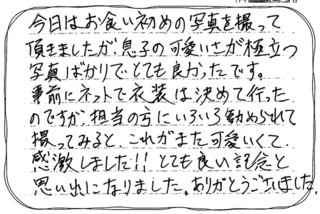 今日はお食い初めの写真を撮って
頂きましたが、息子の可愛いさが極立つ
写真ばかりでとても良かったです。
事前にネットで衣装は決めて行った
のですが、担当の方にいろいろ勧められて
撮ってみると、これがまた可愛いくて
感激しました!! とても良い記念と
思い出になりました。ありがとうございました。